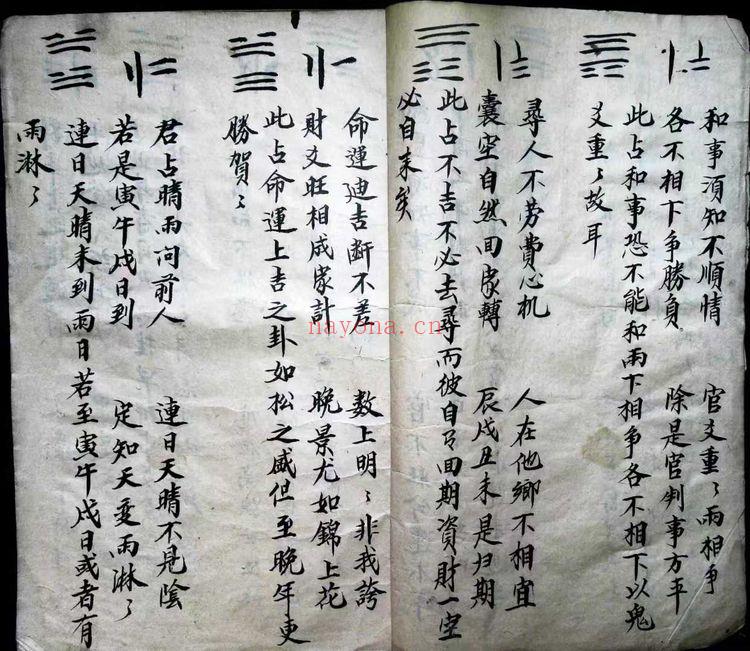 和事須知不順情　官爻重〻兩相爭
各不相下爭勝負　除是官判事方平
此占和事恐不能和兩下相爭各不相下以鬼
爻重〻故耳
尋人不劳費心机　人在他鄉不相宜
囊空自然回家轉　辰戌丑未是归期
此占不吉不必去尋而彼自有回期資財一空
必自来矣
命運迪吉断不差　数上明〻非我誇
財爻旺相成家計　晚景尤如錦上花
此占命運上吉之卦如松之盛但至晚年更
勝賀〻
君占晴雨问前人　連日天晴不見陰
若是寅午戌日到　定知天变雨淋〻
連日天晴未到雨日若至寅午戌日或者有
雨淋〻
nayona.cn